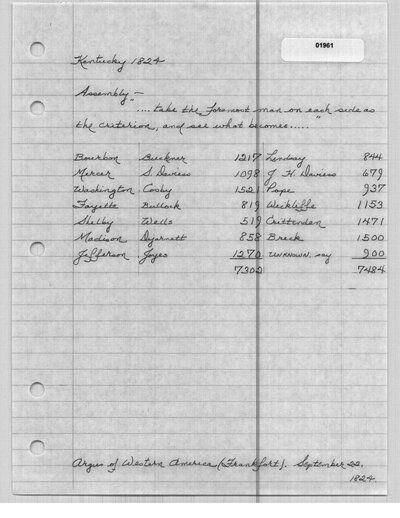 01961
Kentucky 1824
Assembly—
"....take the foremost man on each side as
the criterion, and see what becomes....."
Bourbon Buckner 1217 Lindsay 844
Mercer S. Daviess 1098 J. H. Daviess 679
Washington Cosby 1521 Pope 937
Fayette Bullock 819 Wickliffe 1153
Shelby Wells 519 Crittenden 1471
Madison Dejarnatt 858 Breck 1500
Jefferson Joyes 1270 UNKNOWN, say 900
7302 7484
Argus of Western America (Frankfort). September 22,
1824.